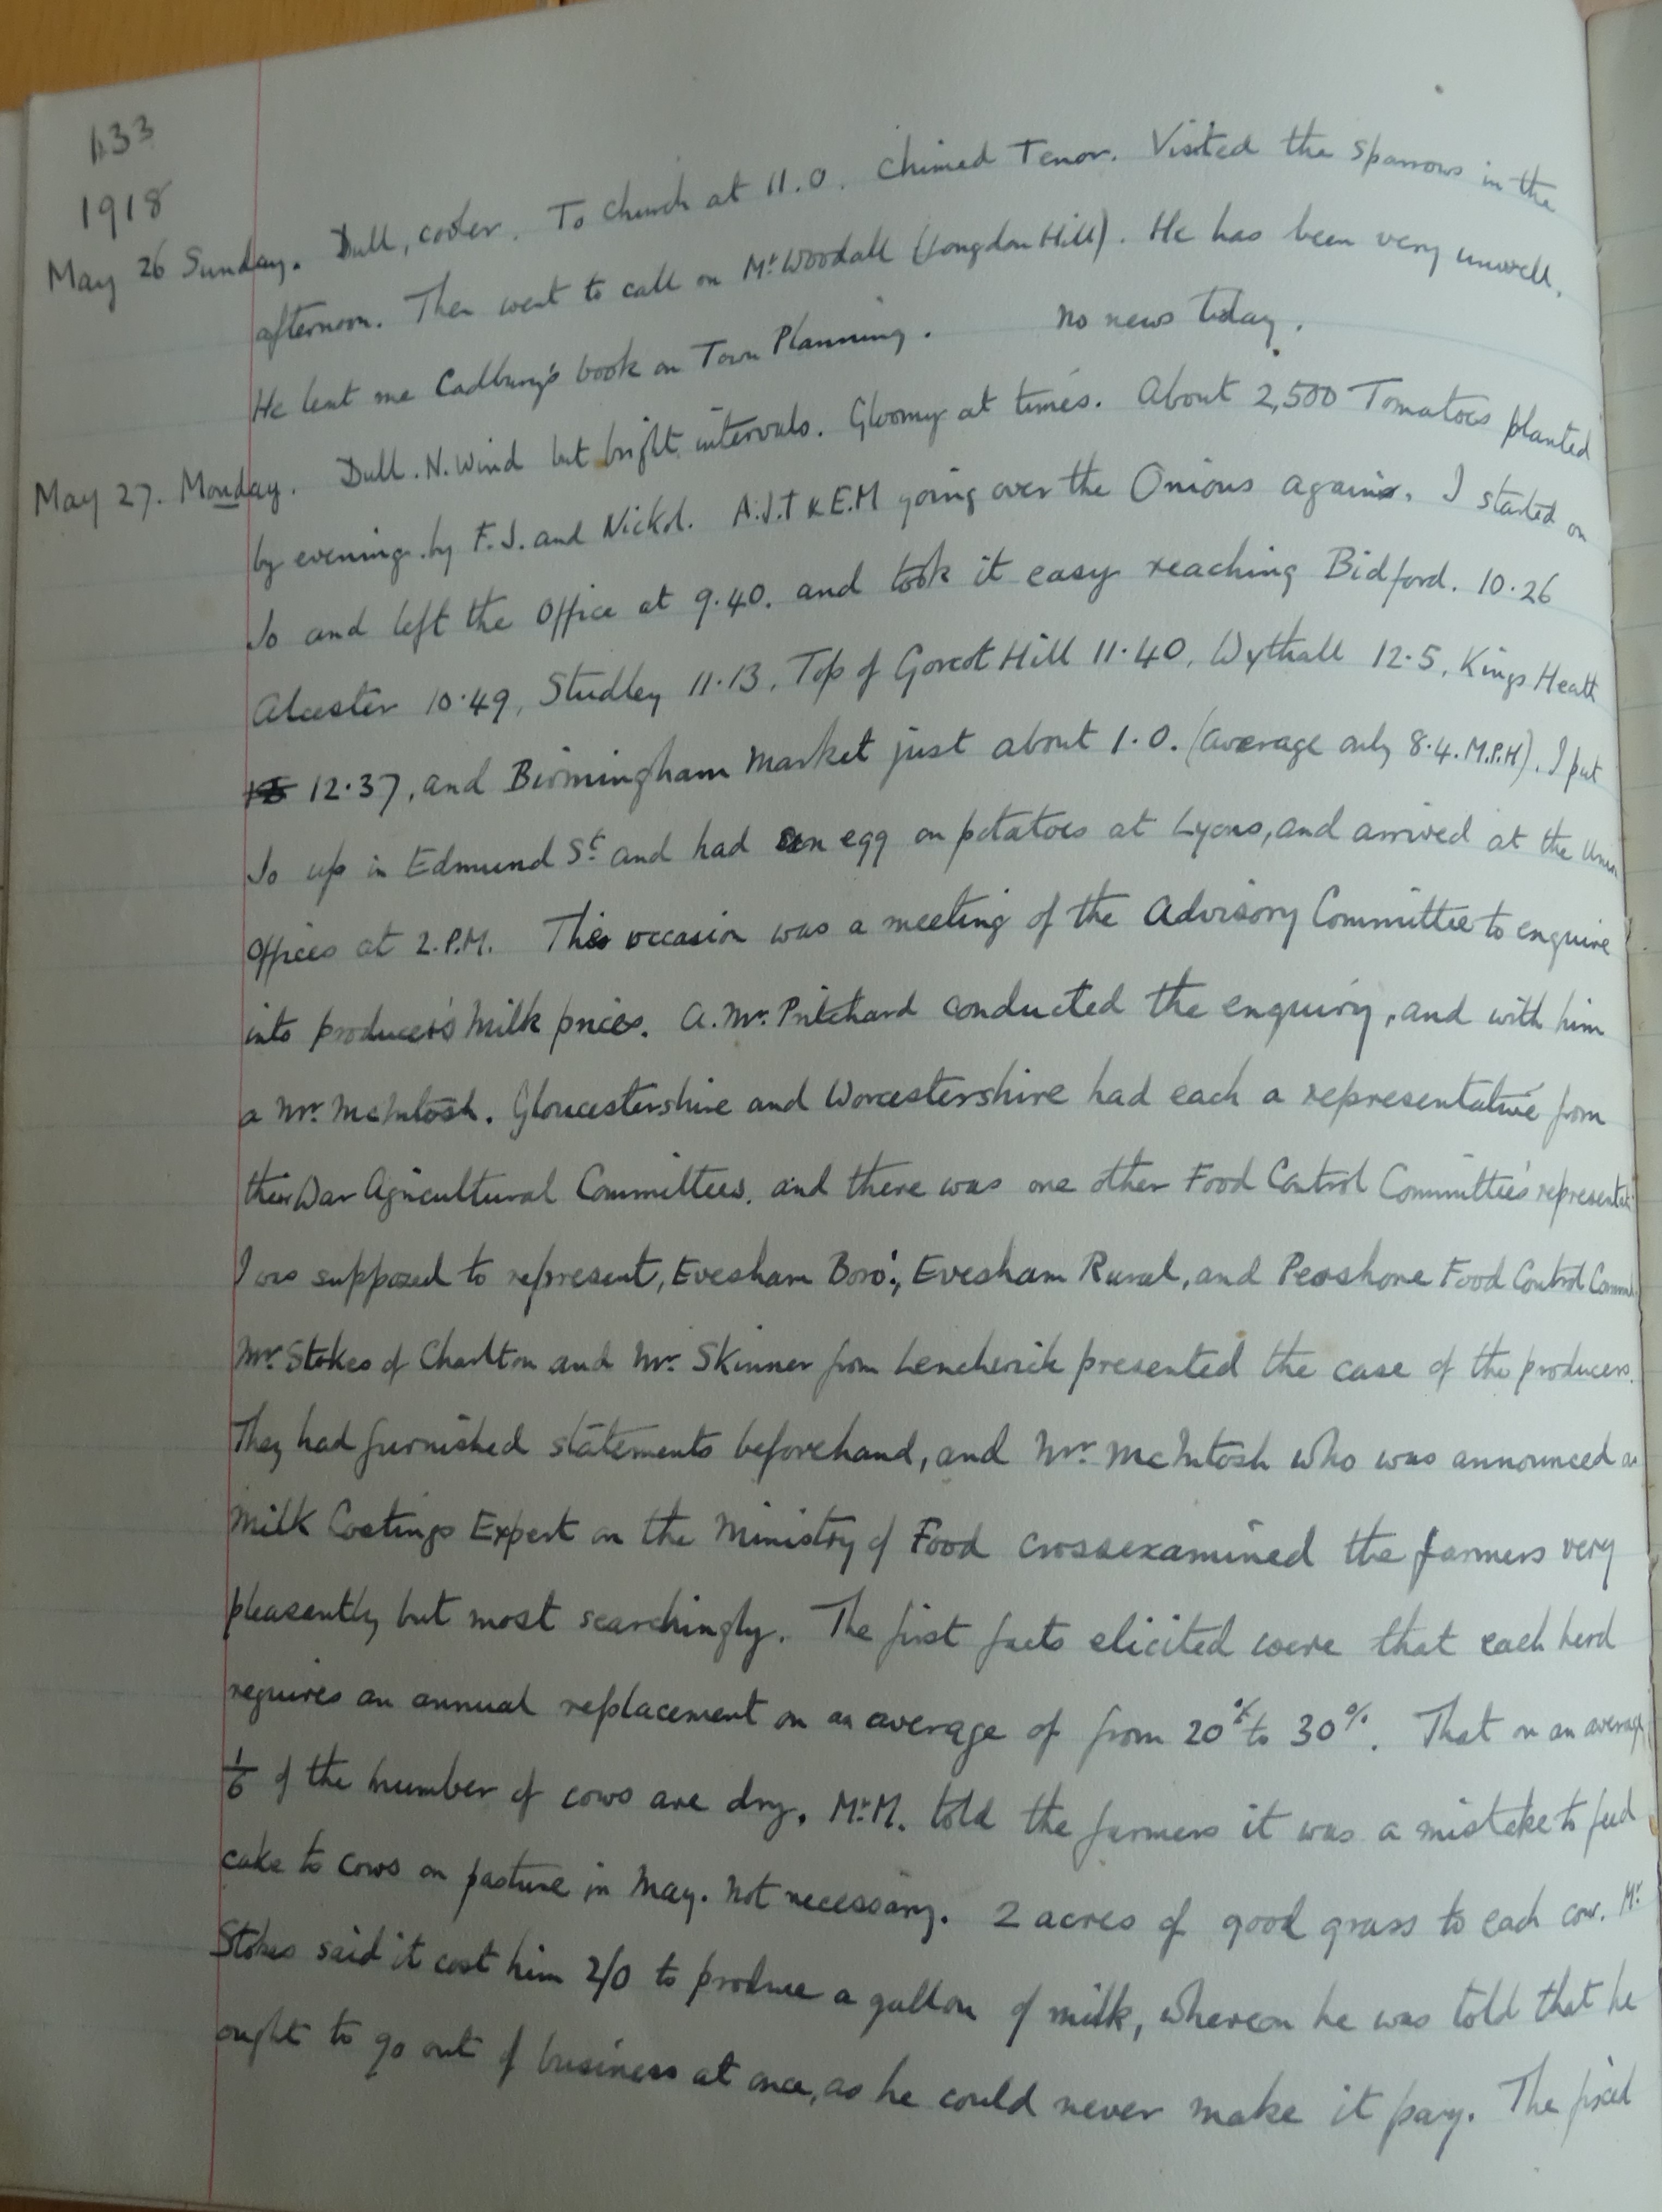 133
1918
May 26 Sunday. Dull, cooler. To Church at 11.0. Chimed Tenor. Visited the Sparrows in the
afternoon. Then went to call on Mr Woodall (Longdon Hill). He has been very unwell.
He lent me Cadbury's book on Town Planning. No news today.
May 27. Monday. Dull. N. Wind but bright intervals. Gloomy at times. About 2,500 Tomatoes planted
by evening by F.J. and Nickol. A.J.T & E.M going over the Onions again. I started on
Jo and left the Office at 9.40. and took it easy reaching Bidford. 10.26
Alcester 10.49, Studley 11.13, Top of Gorcot Hill 11.40, Wythall 12.5, Kings Heath
12.37, and Birmingham Market just about 1.0. (average only 8.4. M.P.H). I put
Jo up in Edmund St and had an egg on potatoes at Lyons, and arrived at the
Offices at 2.P.M. This occasion was a meeting of the Advisory Committee to enquire
into producer's Milk prices. A. Mr. Pritchard conducted the enquiry, and with him
a Mr. McIntosh. Gloucestershire and Worcestershire had each a representative from
their War Agricultural Committees, and there was one other Food Control Committee's
I was supposed to represent, Evesham Boro', Evesham Rural, and Pershore Food Control
Mr. Stokes of Charlton and Mr. Skinner from Lenchwick presented the case of the producers.
They had furnished statements beforehand, and Mr. McIntosh who was announced as
Milk Costings Expert on the Ministry of Food crossexamined the farmers very
pleasantly but most searchingly. The first facts elicited were that each herd
requires an annual replacement on an average of from 20% to 30%. That on an average
1/6 of the number of cows are dry. Mr M. told the farmers it was a mistake to feed
cake to cows on pasture in May. Not necessary. 2 acres of good grass to each cow. Mr
Stokes said it cost him 2/0 to produce a gallon of milk, whereon he was told that he
ought to go out of business at once, as he could never make it pay. The fixed